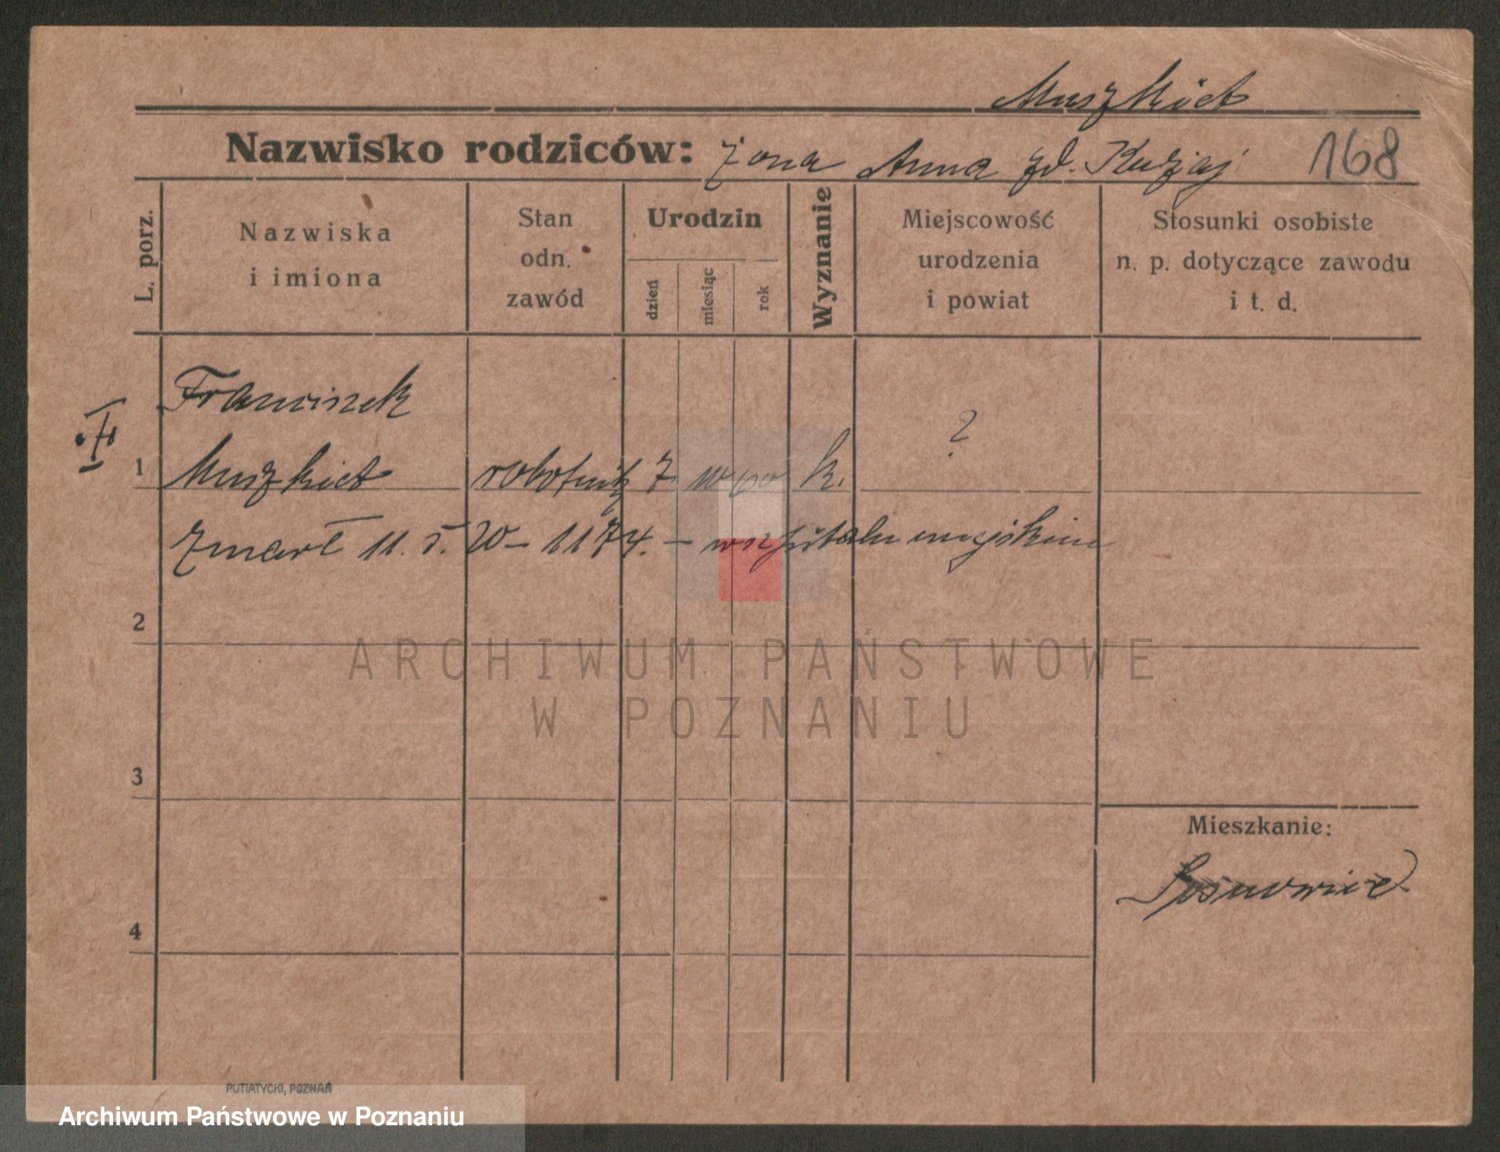 Muszkiet
Nazwisko rodziców: żona Anna zd. Kuzaj 168
L. porz.
Nazwiska
i imiona
Stan
odn.
zawód
Urodzin
dzień
miesiąc
rok
Wyznanie
Miejscowość
urodzenia
i powiat
Stosunki osobiste
n. p. dotyczące zawodu
i t. d.
Franciszek
?
1 Muszkiet robotnik 7 10 60 k.
zmarł 11.5. 20 – 1174. – w szpitalu miejskim
2
ARCHIWUM PAŃSTWOWE
W POZNANIU
3
Mieszkanie:
Sosnowice
4
PUTIATYCKI, POZNAŃ
Archiwum Państwowe w Poznaniu